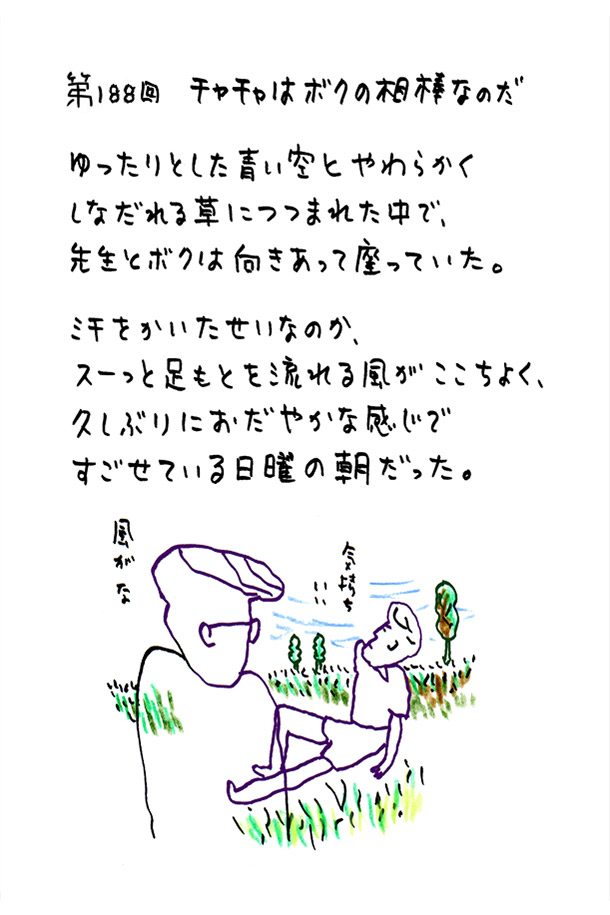 第188回 チャチャはボクの相棒なのだ
ゆったりとした青い空とやわらかく
しなだれる草につつまれた中で、
先生とボクは向きあって座っていた。
汗をかいたせいなのか、
スーっと足もとを流れる風がここちよく、
久しぶりにおだやかな感じで
すごせている日曜の朝だった。
風がな
気持ち
いい